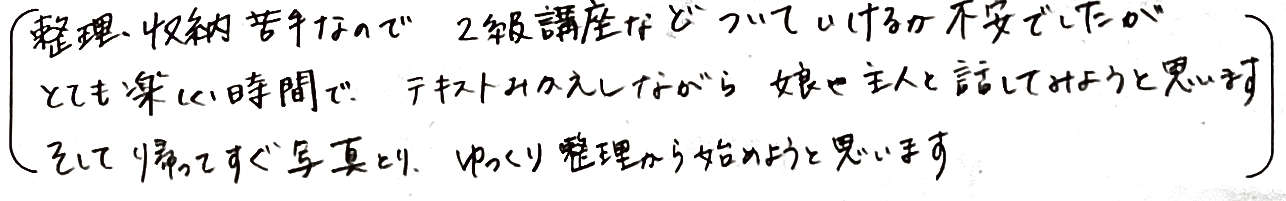 整理、収納苦手なので 2級講座など ついていけるか不安でしたが
とても楽しい時間で、テキストみかえしながら 娘や主人と話してみようと思います
そして帰ってすぐ写真とり、ゆっくり整理から始めようと思います